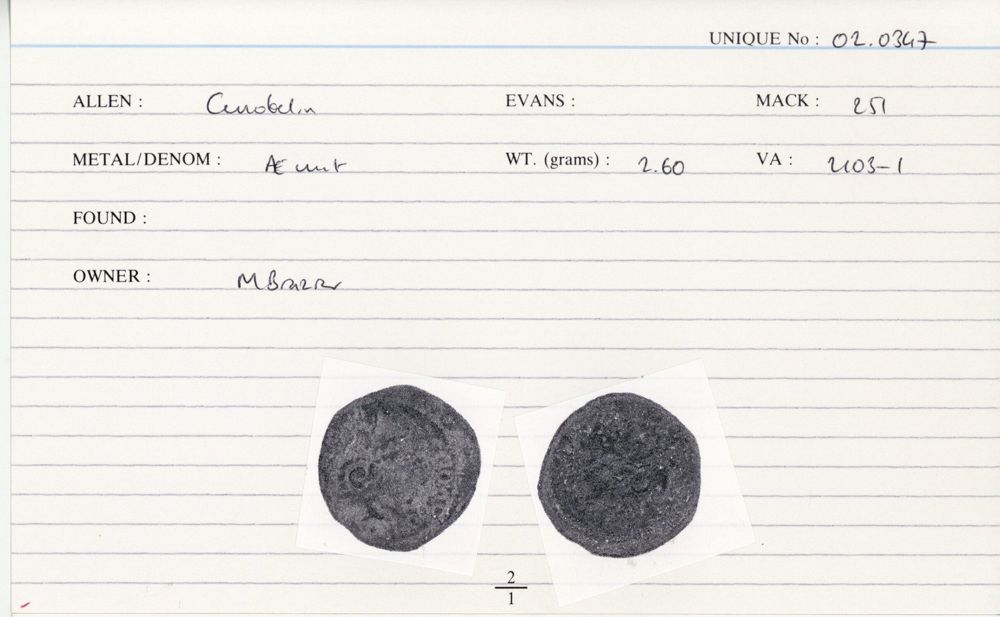 UNIQUE No : 02.0347
ALLEN : Cunobelin EVANS : MACK : 251
METAL/DENOM : Æ unit WT. (grams) : 2.60 VA : 2103-1
FOUND :
OWNER : M
2
1